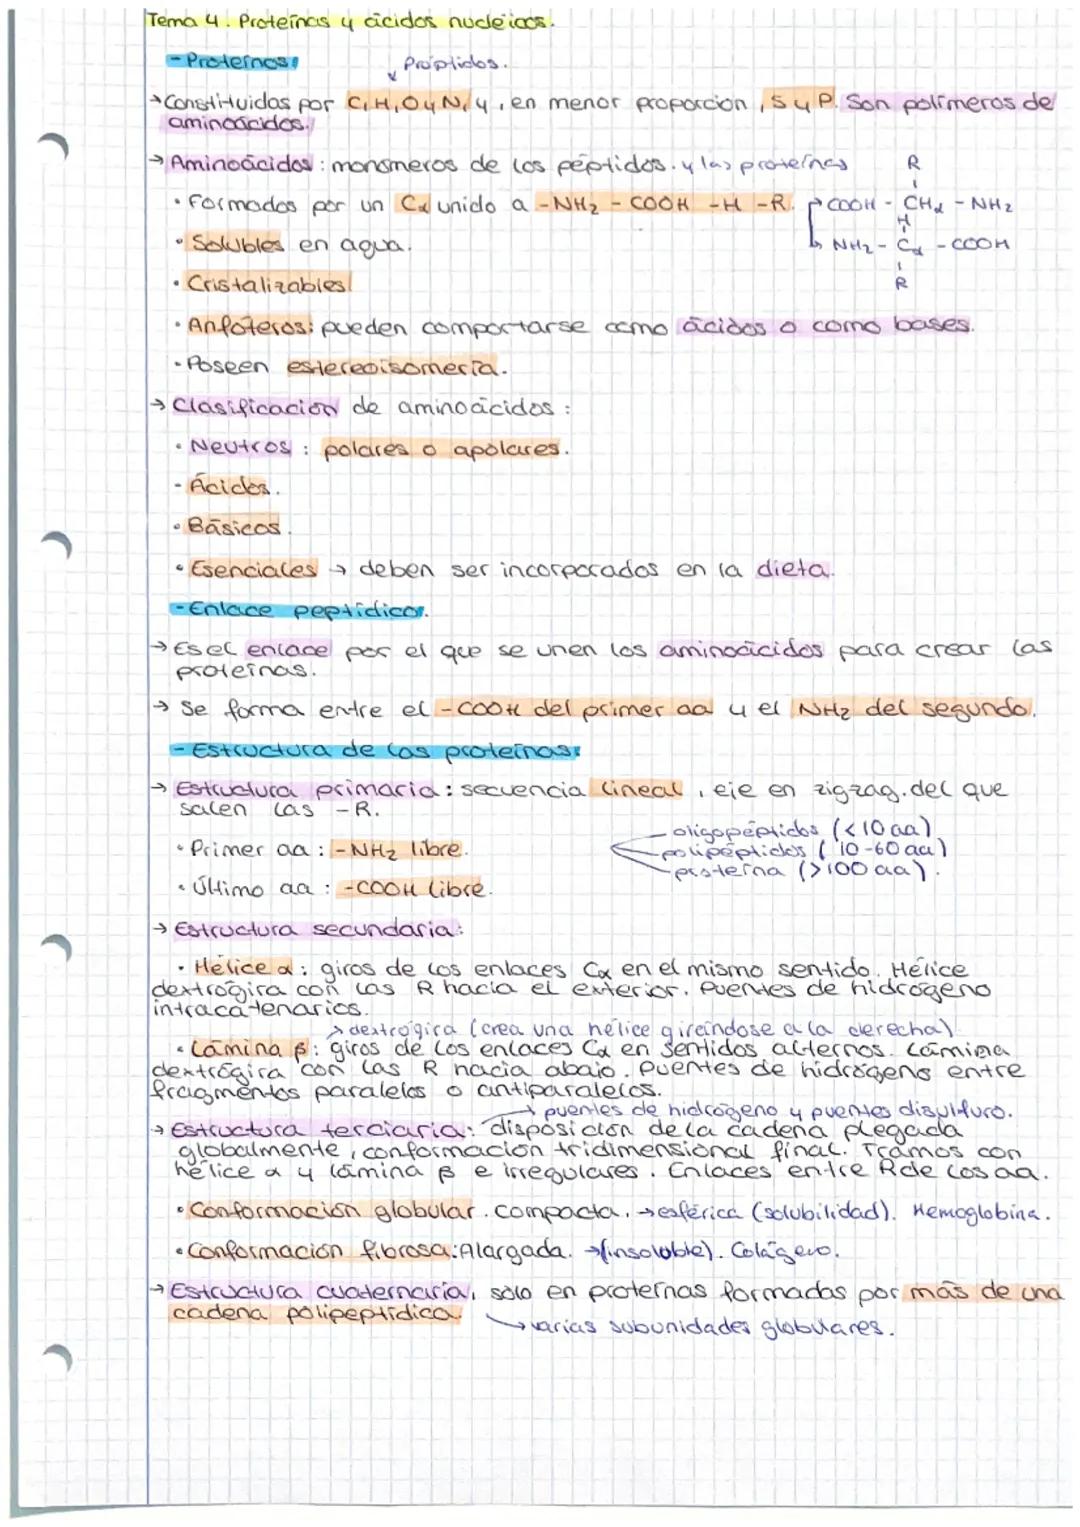 Tema 4. Proteínas y ácidos nucleicos.
- Proteínas:
Próptidos.
→ Constituidas por C, H, O y N, y, en menor proporción, S y P. Son polímeros de
aminoácidos.
→ Aminoácidos: monómeros de los péptidos. y las proteínas
• Formados por un Cα unido a -NH2 - COOH -H -R.
R
COOH - CHα - NH2
H
NH2 - Cα - COOH
R
• Solubles en agua.
• Cristalizables
• Anfóteros: pueden comportarse como ácidos o como bases.
• Poseen estereoisomería.
→ Clasificación de aminoácidos:
• Neutros: polares o apolares.
- Ácidos.
• Básicos.
• Esenciales → deben ser incorporados en la dieta.
- Enlace peptídico.
→ Es el enlace por el que se unen los aminoácidos para crear las
proteínas.
→ Se forma entre el -COOH del primer aa y el NH2 del segundo.
- Estructura de las proteínas:
→ Estructura primaria: secuencia lineal, eje en zigzag. del que
salen las -R.
oligopéptidos (<10 aa)
polipéptidos (10-60 aa)
proteína (>100 aa).
• Primer aa: -NH2 libre.
• Último aa: -COOH libre.
→ Estructura secundaria:
• Hélice α: giros de los enlaces Cα en el mismo sentido. Hélice
dextrógira con las R hacia el exterior. Puentes de hidrógeno
intracatenarios.
→ dextrógira (crea una hélice gireándose a la derecha)
• Lámina β: giros de los enlaces Cα en sentidos alternos. Lámina
dextrógira con las R hacia abajo. Puentes de hidrógeno entre
fragmentos paralelos o antiparalelos.
→ puentes de hidrógeno y puentes disulfuro.
→ Estructura terciaria: disposición de la cadena plegada
globalmente, conformación tridimensional final. Tramos con
hélice α y lámina β e irregulares. Enlaces entre R de los aa.
• Conformación globular. compacta. → esférica (solubilidad). Hemoglobina.
• Conformación fibrosa: Alargada. → (insoluble). Colágeno.
→ Estructura cuaternaria, sólo en proteínas formadas por más de una
cadena polipeptídica.
→ varias subunidades globulares.